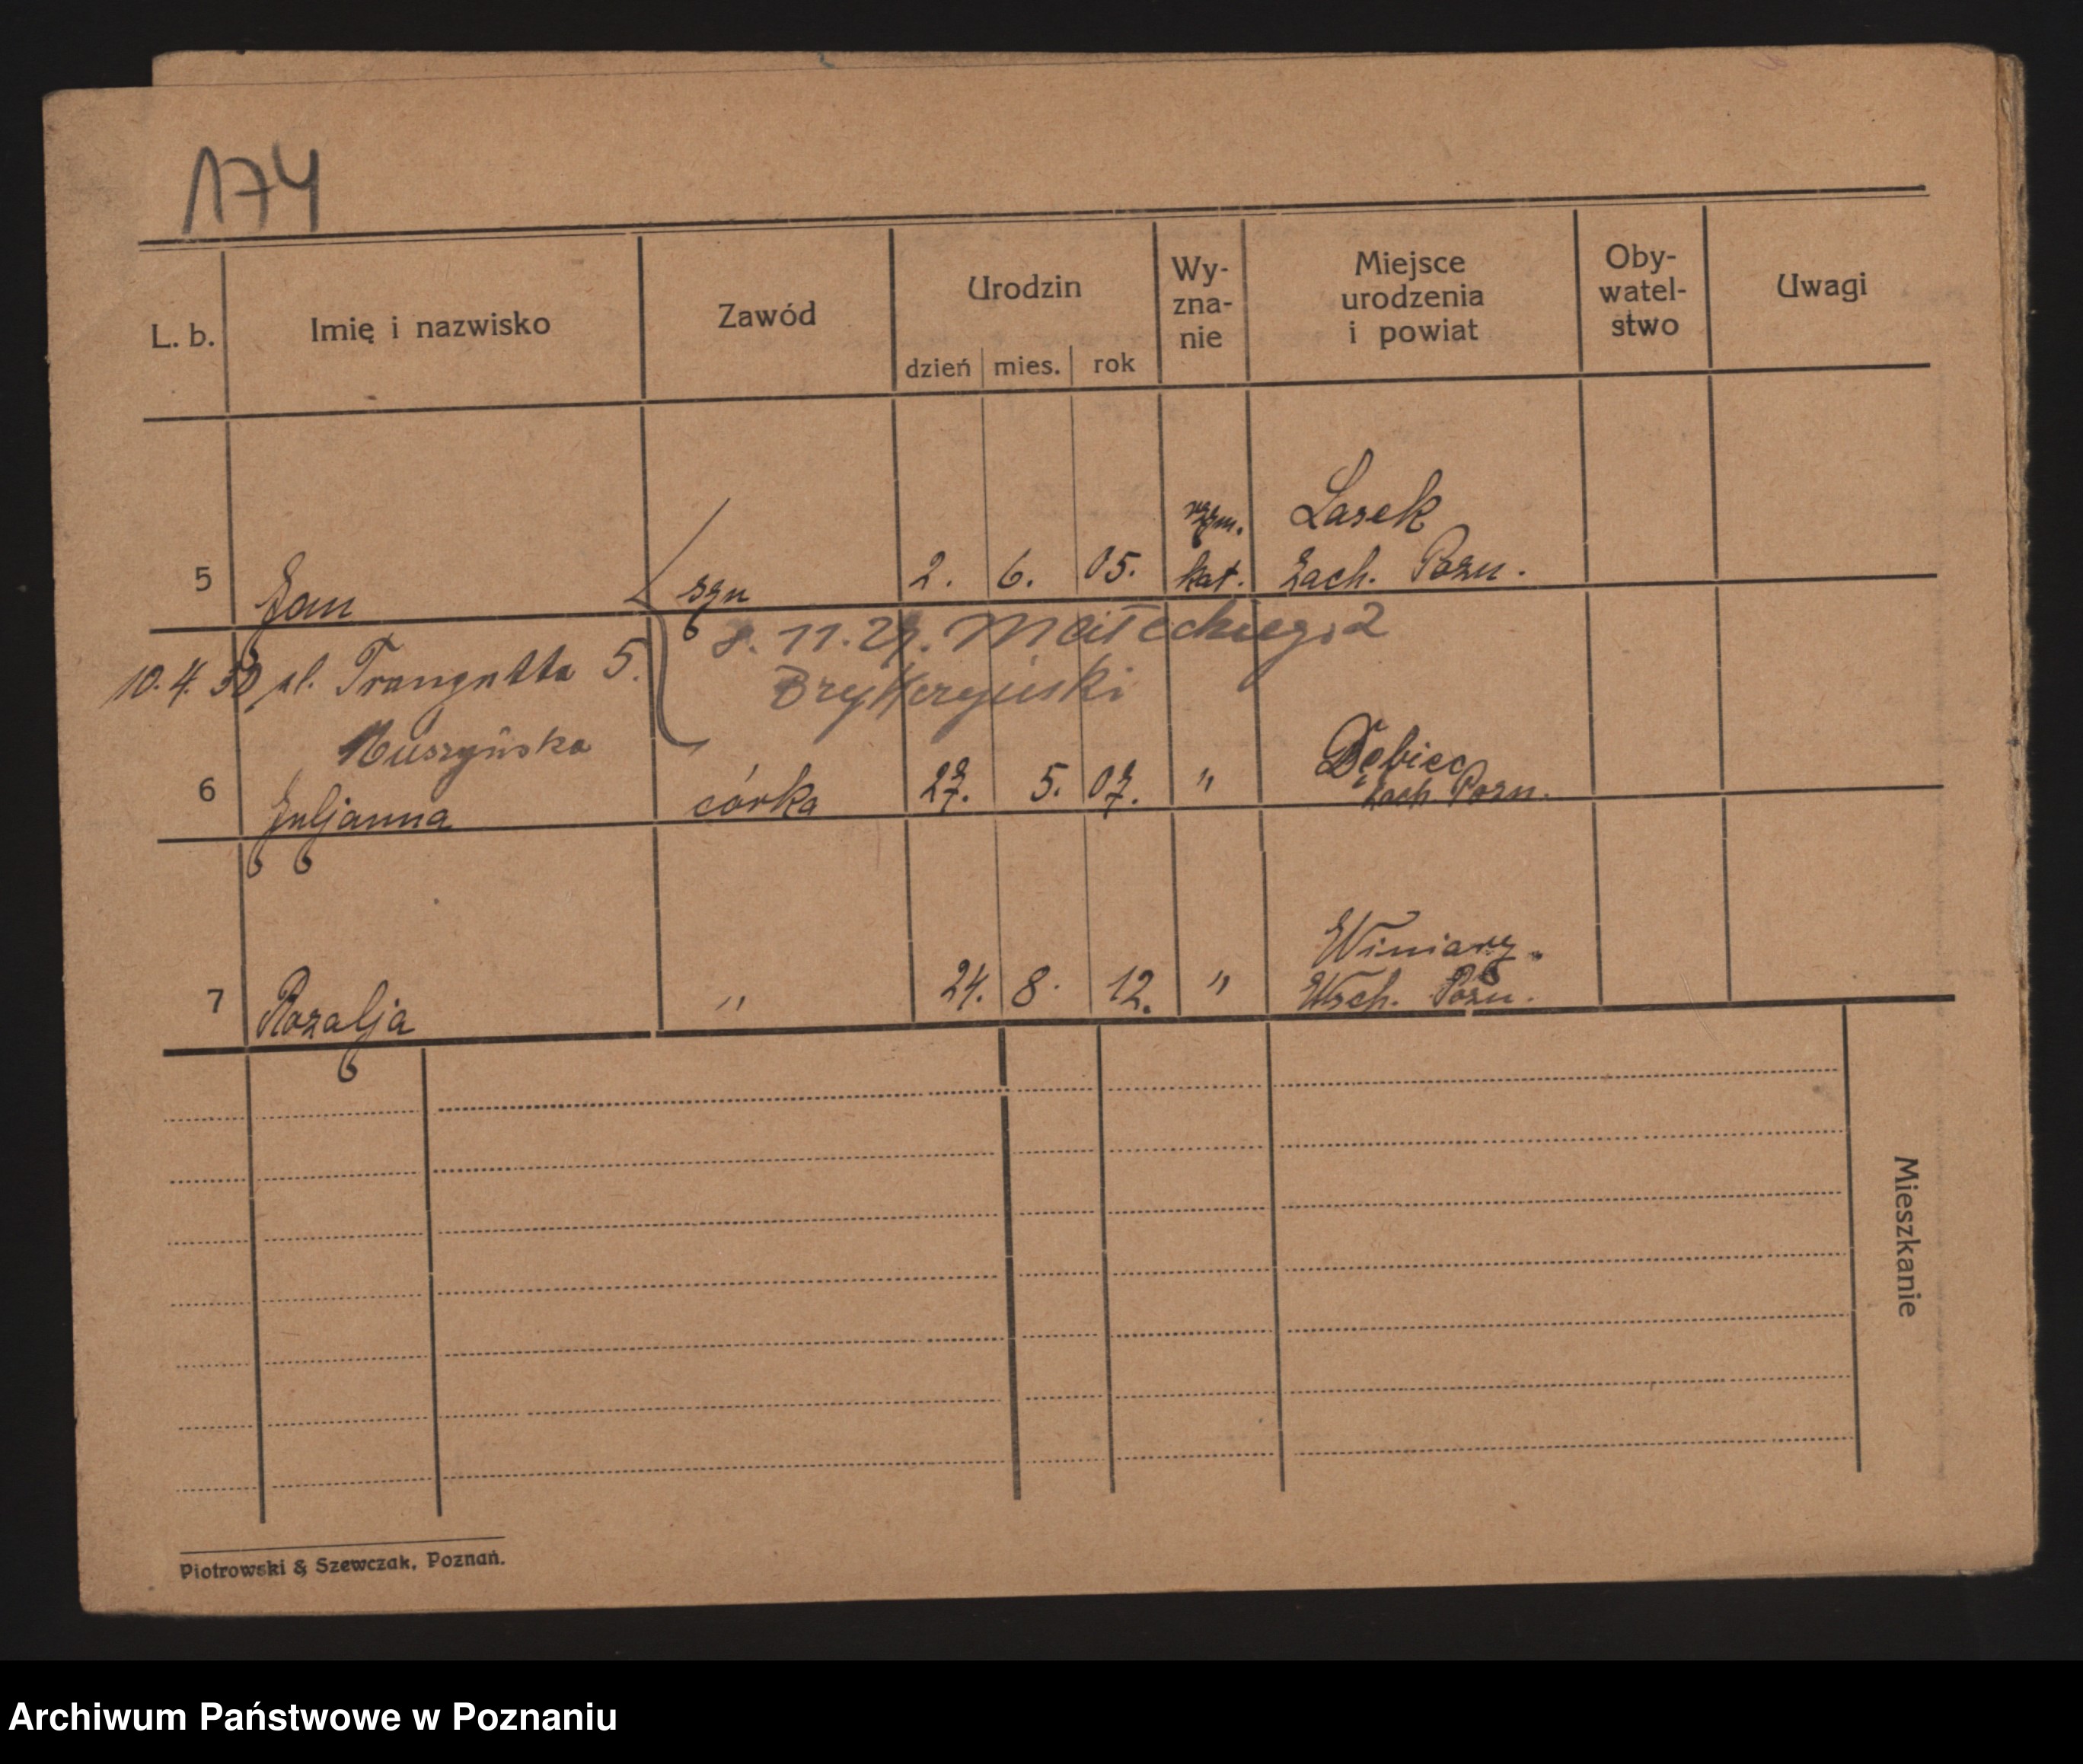 174
L. b. Imię i nazwisko Zawód Urodzin Wy- Miejsce Oby- Uwagi
zna- urodzenia watel-
nie i powiat stwo
dzień mies. rok
rzym. Lasek
5 Jan syn 2. 6. 05. kat. Zach. Pozn.
8. 11. 29. Małeckiego 2
10. 4. 30 pl. Traugutta 5.
Muszyńska
Dębiec
6 Juljanna córka 27. 5. 07. " Zach. Pozn.
Winiary.
7 Rozalja " 24. 8. 12. " Wsch. Pozn.
Mieszkanie
Piotrowski & Szewczak, Poznań.
Archiwum Państwowe w Poznaniu